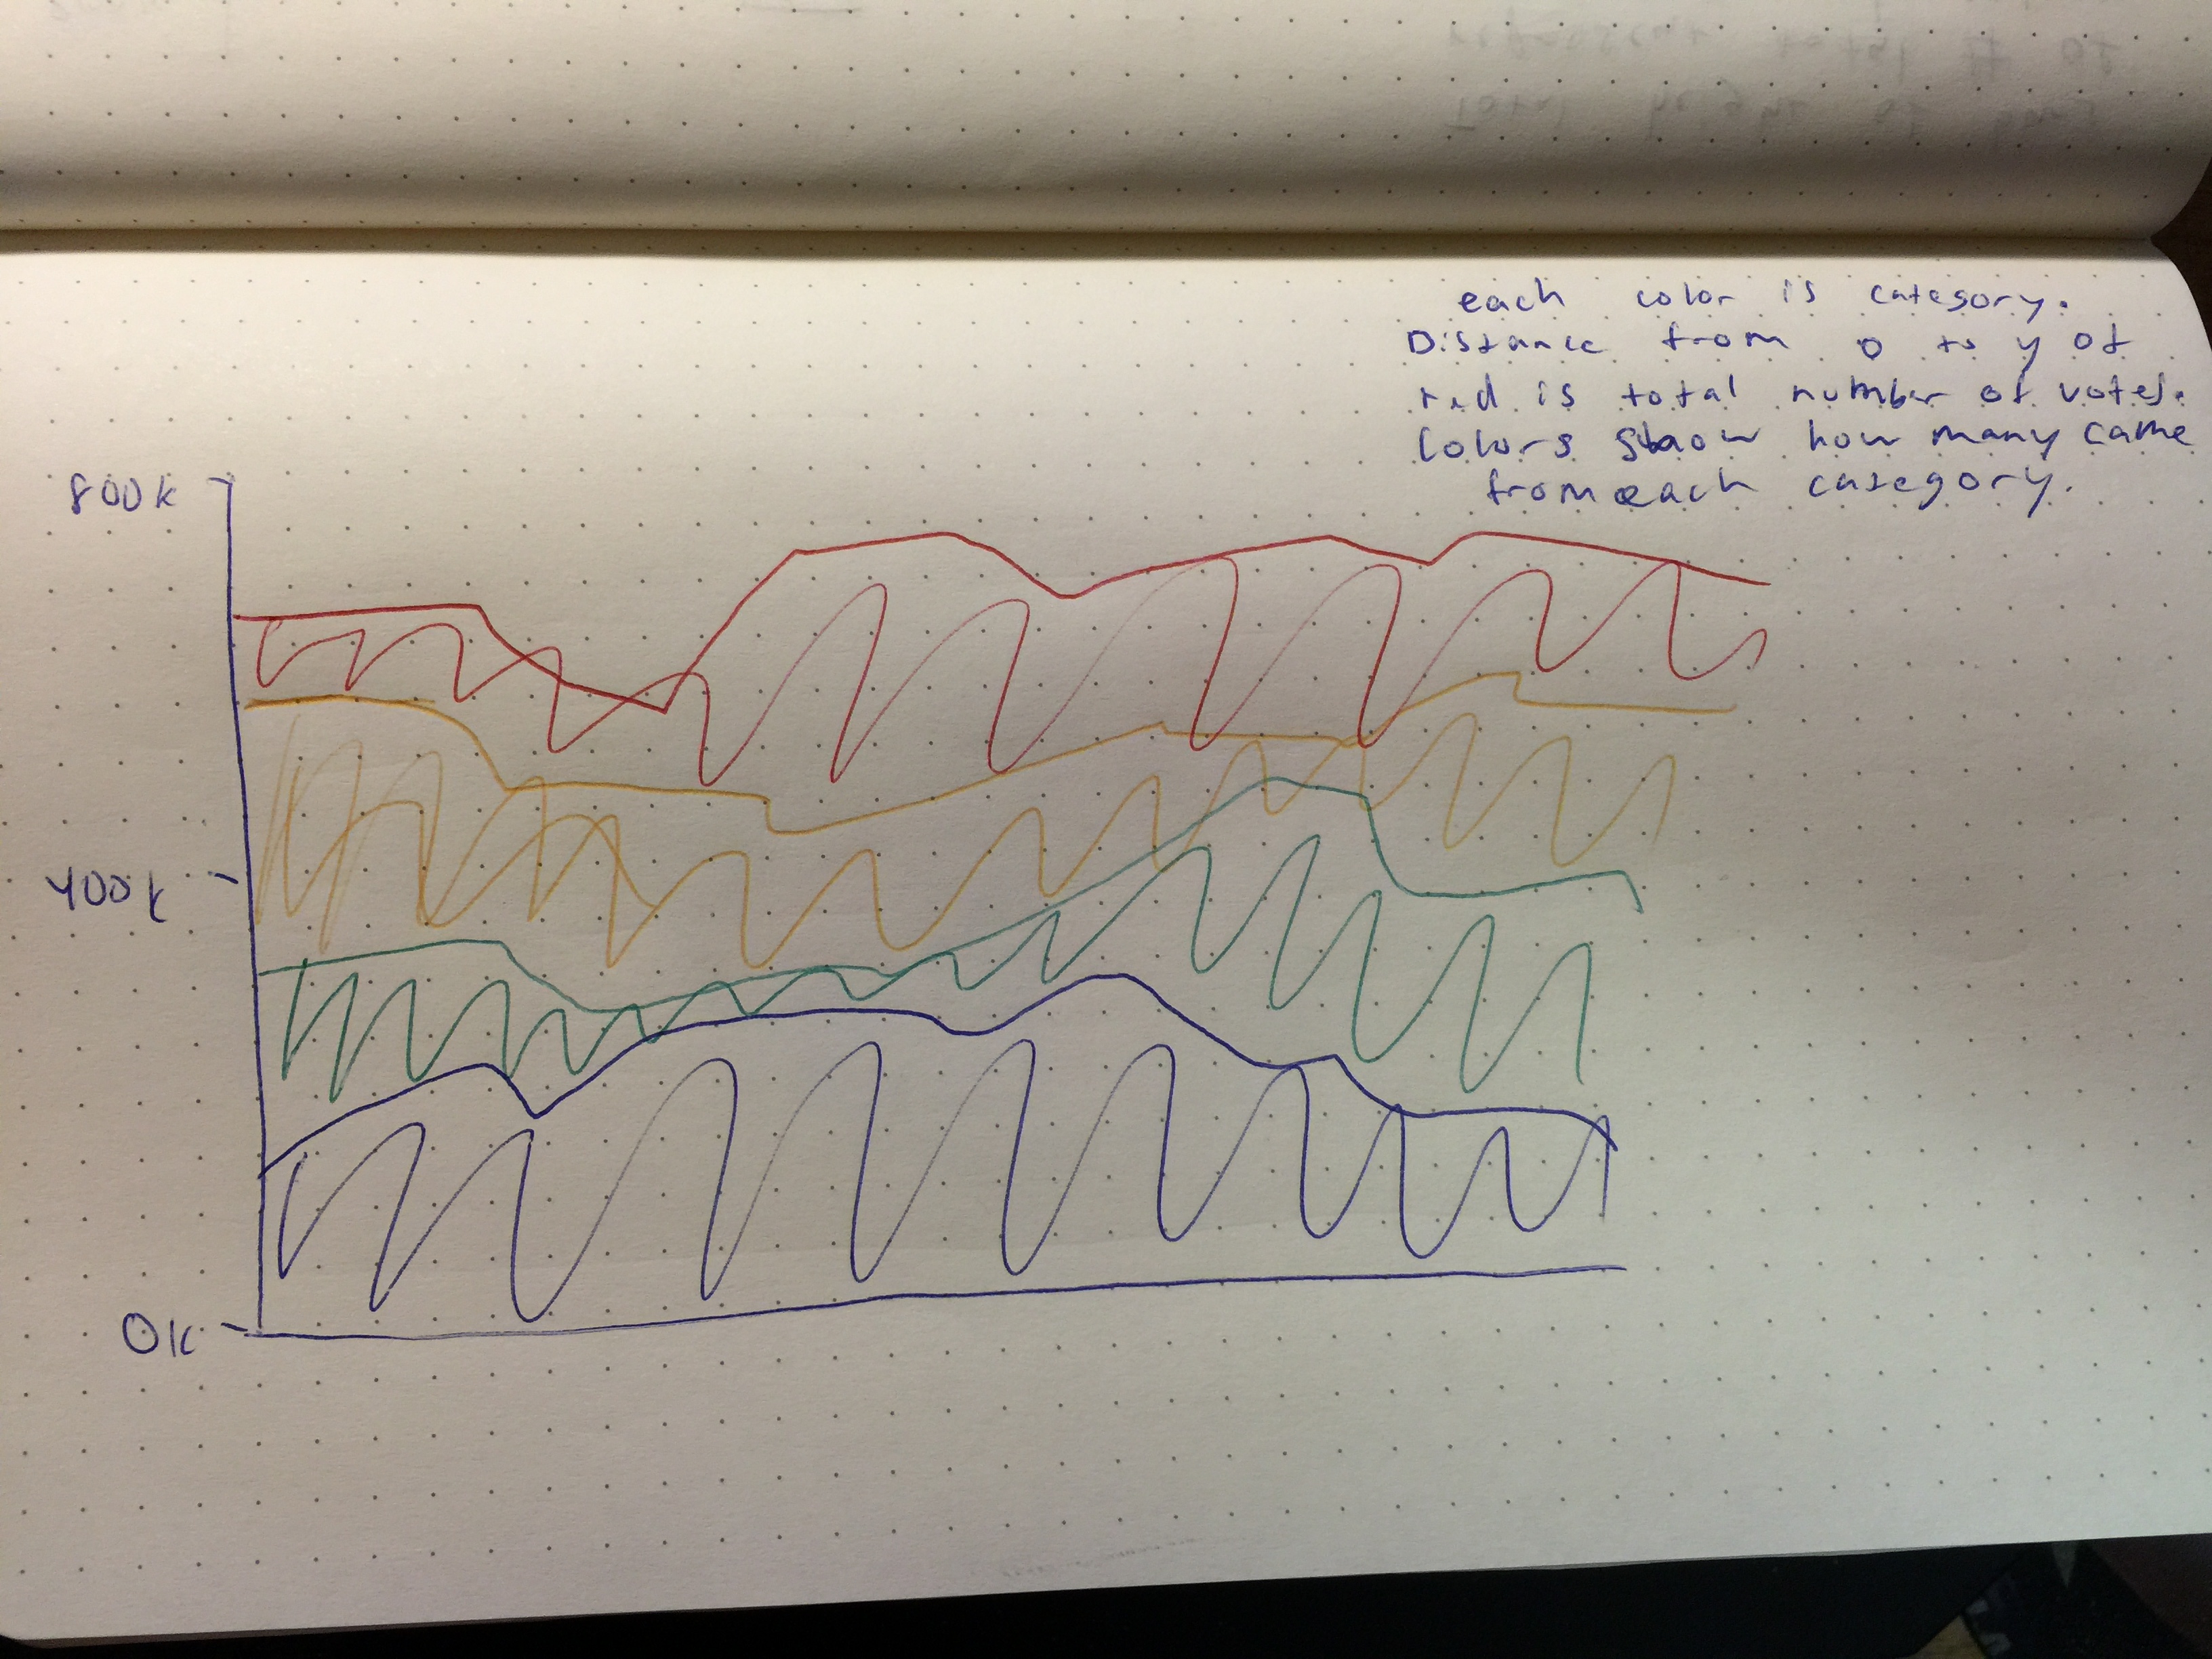 800k
400k
0k
each color is category.
Distance from 0 to y of
red is total number of votes.
Colors show how many came
from each category.